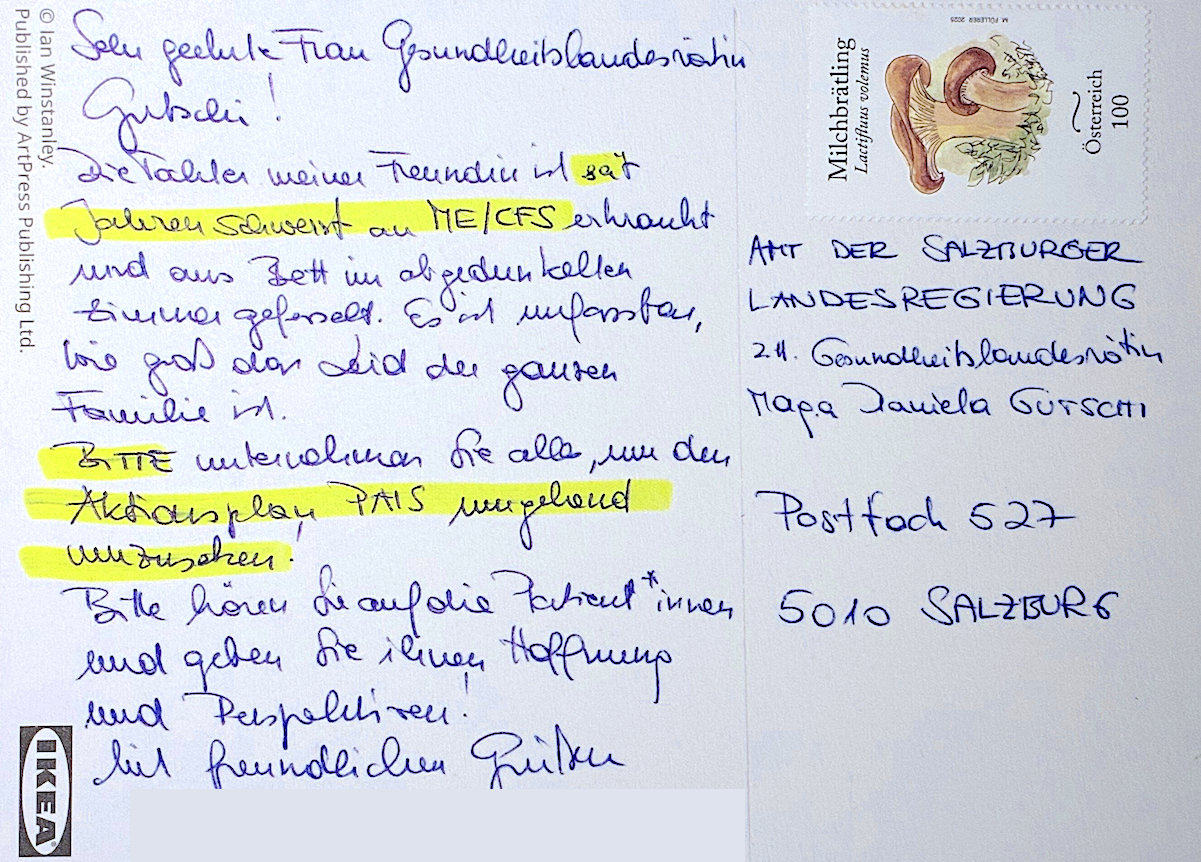 Sehr geehrte Frau Gesundheitslandesrätin
Gutschi!
Die Tochter meiner Freundin ist seit
Jahren schwerst an ME/CFS erkrankt
und ans Bett im abgedunkelten
Zimmer gefesselt. Es ist unfassbar,
wie groß das Leid der ganzen
Familie ist.
BITTE unternehmen Sie alles, um den
Aktionsplan PAIS umgehend
umzusetzen!
Bitte hören Sie auf die Patient*innen
und geben Sie ihnen Hoffnung
und Perspektiven!
Mit freundlichen Grüßen
M. FÜLLERER 2025
Milchbrätling
Lactifluus volemus
Österreich
100
AMT DER SALZBURGER
LANDESREGIERUNG
z.H. Gesundheitslandesrätin
Maga Daniela GUTSCHI
Postfach 527
5010 SALZBURG
© Ian Winstanley.
Published by ArtPress Publishing Ltd.
IKEA